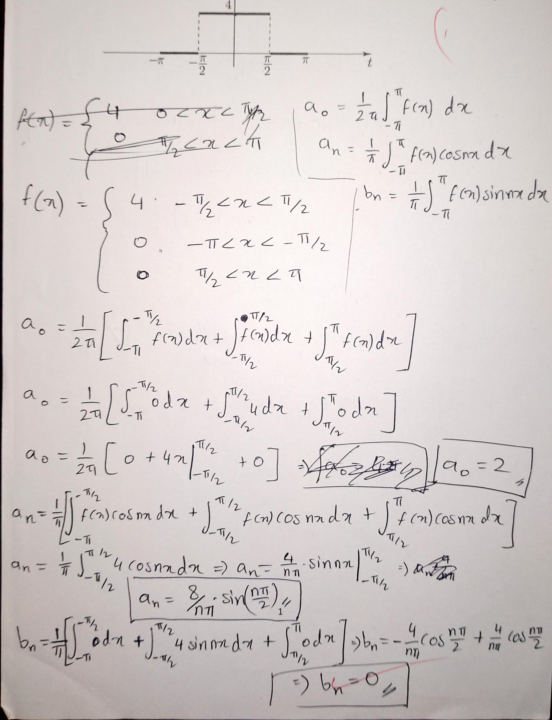 4
-π -π/2 π/2 π t
f(x) = { 4 0 < x < π/2
0 π/2 < x < π
a₀ = 1/2π ∫_{-π}^{π} f(x) dx
aₙ = 1/π ∫_{-π}^{π} f(x) cosnx dx
bₙ = 1/π ∫_{-π}^{π} f(x) sinnx dx
f(x) = { 4 . -π/2 < x < π/2
0 . -π < x < -π/2
0 π/2 < x < π
a₀ = 1/2π [ ∫_{-π}^{-π/2} f(x) dx + ∫_{-π/2}^{π/2} f(x) dx + ∫_{π/2}^{π} f(x) dx ]
a₀ = 1/2π [ ∫_{-π}^{-π/2} 0 dx + ∫_{-π/2}^{π/2} 4 dx + ∫_{π/2}^{π} 0 dx ]
a₀ = 1/2π [ 0 + 4x |_{-π/2}^{π/2} + 0 ] ⇒ a₀ = 2 //
aₙ = 1/π [ ∫_{-π}^{-π/2} f(x) cosnx dx + ∫_{-π/2}^{π/2} f(x) cosnx dx + ∫_{π/2}^{π} f(x) cosnx dx ]
aₙ = 1/π ∫_{-π/2}^{π/2} 4 cosnx dx ⇒ aₙ = 4/nπ · sinnx |_{-π/2}^{π/2} ⇒
aₙ = 8/nπ · sin(nπ/2) //
bₙ = 1/π [ ∫_{-π}^{-π/2} 0 dx + ∫_{-π/2}^{π/2} 4 sinnx dx + ∫_{π/2}^{π} 0 dx ] ⇒ bₙ = -4/nπ cos nπ/2 + 4/nπ cos nπ/2
⇒ bₙ = 0 //